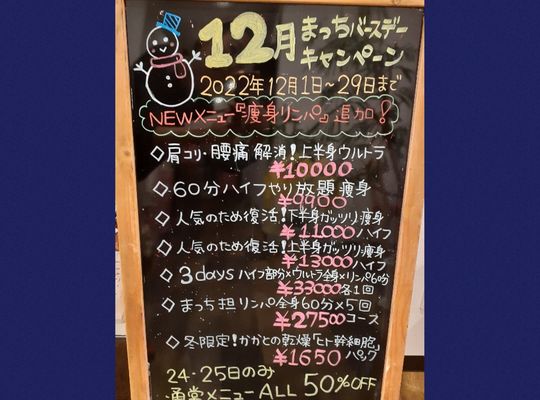 12月 まっちバースデー
キャンペーン
2022年12月1日~29日まで
NEWメニュー『痩身リンパ』追加!
◇肩コリ・腰痛解消!上半身ウルトラ
¥10000
◇60分ハイフやり放題痩身
¥9900
◇人気のため復活!下半身ガッツリ痩身
¥11000ハイフ
◇人気のため復活!上半身ガッツリ痩身
¥13000ハイフ
◇3days ハイフ部分×ウルトラ全身×リンパ60分
¥33000各1回
◇まっち担リンパ全身60分×5回
¥27500コース
◇冬限定!かかとの乾燥「ヒト幹細胞」
¥1650パック
24・25日のみ
通常メニューALL 50%OFF